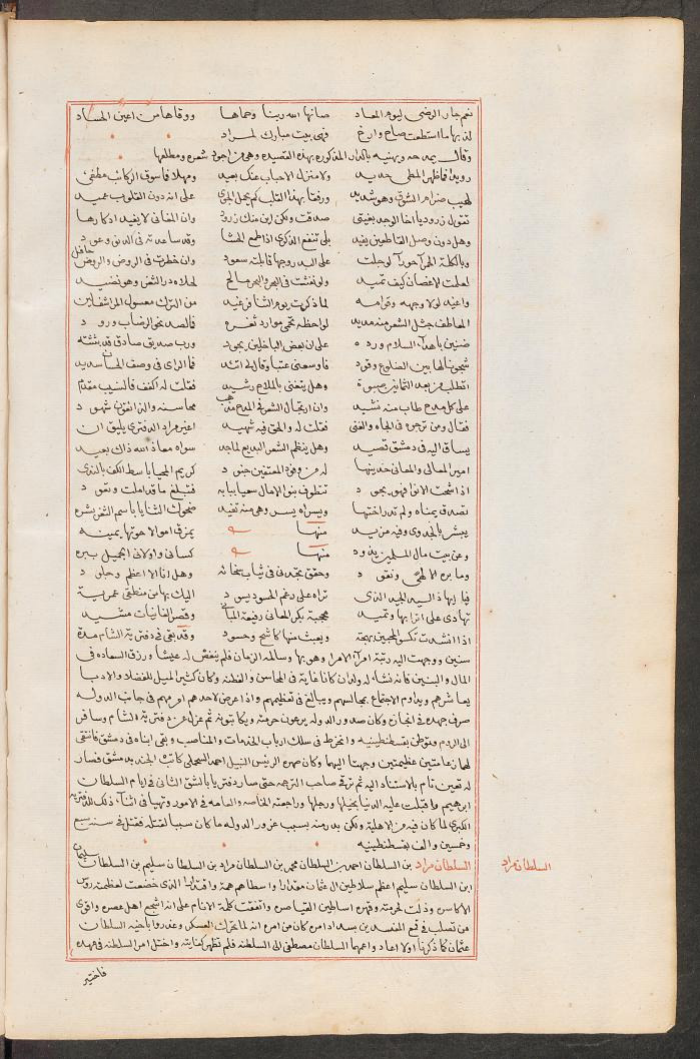 نعم جار الرضى ليوم المعاد صانها الله ربنا وحماها ووقاها من اعين الحساد
لذ بها ما استطعت صاح وارخ فهى بيت مبارك لمراد
وقال يمدحه ويهنيه بالدار المذكوره بهذه القصيده وهى من اجود شعره ومطلعها
رويدا فاظهر المطى حديد ولا منزل الاحباب عنك بعيد ومهلا فاسوق الركائب مطفى
لهيب ضرام الشوق وهو شديد ورفقا بهذا القلب كم يحمل الهوى على انه دون القلوب عميد
تقول زرود يا اخا الوجد بغيتى صدقت ولكن اين منك زرود وان المغانى لا يفيد ادكارها
وهل دون وصل القاطعين يفيد بلى تنفع الذكرى اذا طمع الحشا وقد ساعدته فى الدنو وعود
وبالكلة الحمرا حورا لو جلت على البدر وجها قابلته سعود وان خطرت فى الروض والروض حافل
لعلمت الاغصان كيف تميد ولو تفثت فى البحر والبحر مالح لحلاه در الثغر وهو نضيد
واغيد لولا وجهه وقوامه لما ذكرت يوم التنافر غيد من الترك معسول المراشف
لواحظه تحمى موارد ثغره فالصد نحو الرضاب ورود
ضنين باهداء السلام ورده على ان بعض الباخلين يجود ورب صديق صادق قد بثثته
شجونا لها بين الضلوع وقود فاوسعنى عتبا وقال لى اتئد فا الراى فى وصف الحسان سديد
اتطلب من بعد الثمانين صبوة وهل يتغنى بالملاح رشيد فقلت له اكفف فالنسيب مقدم
على كل مدح طاب منه نشيد وان ارتجال الشعر فى المدح مذهب محاسنه والله اتقول شهود
فقال ومن ترجوه فى الجاه والغنى فقلت له والحق فيه شهيد اغير مراد الدفترى يليق ان
يساق اليه فى دمشق قصيد وهل ينظم الشعر البديع لماجد سواه معاذ الله ذاك بعيد
امير المعالى والمعانى خدينها له من وفود المعتفين جنود كريم المحيا باسط الكف بالندى
اذا شحت الانوا فهو يجود تطوف بنو الامال سعيا ببابه فتبلغ ما قد املت وتعود
تصدق يمناه ولم تدر اختها ويسراه يسر وهى منه تفيد ضحوك الثنايا باسم الثغر بشره
يبشر بالجدوى وفيه مزيد منها يمزق اموالا حوتها يمينه
وعن بيت مال المسلمين يذود منها كسانى واولانى الجميل ببره
وما بره الا لهى ونقود وحقق مجتدى فى ثياب سخائه وهل انا الا اعظم وجلود
فيا ايها ذا السيد الجيد الذى تراه على رغم الحسود يسود اليك بها من منطقى عمرية
تهادى على اترابها وتميد محجبة بكر المعانى رفيعة المبانى وقصر الغانيات مشيد
اذا انشدت تكسو المحبين بهجة ويعبث منها كاشح وحسود وقد بقى فى دفترية الشام مدة
سنين ووجهت اليه رتبة امرآ الامرا وهو بها وسالمه الزمان فلم ينغص له عيشا ورزق السعاده فى
المال والبنين فانه نشا له ولدان كانا غاية فى المحاسن والفطنه وكان كثير الميل للفضلا والادبا
يعاشرهم ويداوم الاجتماع بمجالسهم ويبالغ فى تعظيمهم واذا عرض لاحدهم امر مهم فى جانب الدوله
صرف جهده فى انجازه وكان صدور الدوله يرعون حرمته ويكاتبونه ثم عزل عن دفترية الشام وسافر
الى الروم وتوطن بقسطنطينيه وانخرط فى سلك ارباب الخدمات والمناصب وبقى ابناه فى دمشق فانتقى
لهما زعامتين عظيمتين وجهتا اليهما وكان صهره الرئيس النبيل احمد السحملى كاتب الجند بدمشق فصار
له تعين تام بالاستناد اليه ثم ترقى صاحب الترجمه حتى صار دفتريا بالشق الثانى فى ايام السلطان
ابرهيم واقبلت عليه الدنيا بخيلها ورجلها وراجعته الخاصه والعامه فى الامور وتهيا فى اثنآء ذلك للدفتريه
الكبرى لما كان فيه من الاهلية ولكن بدر منه بسبب غرور الدوله ما كان سببا لقتله فقتل فى سنة سبع
وخمسين والف بقسطنطينيه
السلطان مراد
السلطان مراد بن السلطان احمد بن السلطان محمد بن السلطان مراد بن السلطان سليم بن السلطان سليمان
ابن السلطان سليم اعظم سلاطين ال عثمان مقدارا واسطاهم همة واقتدارا الذى خضعت لعظمته رؤس
الاكاسره وذلت لحرمته وقهره اساطين القياصره واتفقت كلمة الانام على انه اشجع اهل عصره واقوى
من تصلب فى قمع المفسدين بسداد امره كان من امره انه لما تحرك العسكر وغدروا باخيه السلطان
عثمان كما ذكرنا اولا اعادوا عمهما السلطان مصطفى الى السلطنه فلم تظهر كفايته واختل امر السلطنه فى عهده
فاختير